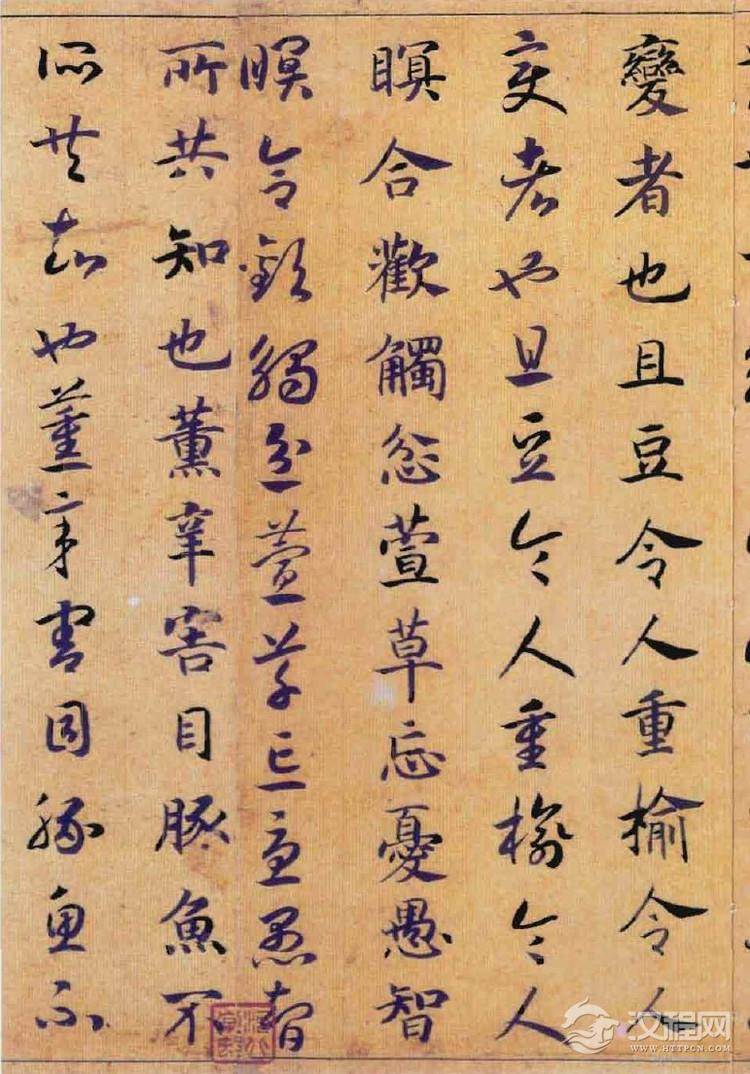 變者也且豆令人重榆令人
变者也且豆令人重榆令人
瞑合歡觸忿萱草忘憂愚智
瞑合歡觸忿萱草忘憂愚智
所共知也薰辛害目豚魚不
所共知也薰辛害目豚魚不
汉程网
WWW.HTTPCN.COM